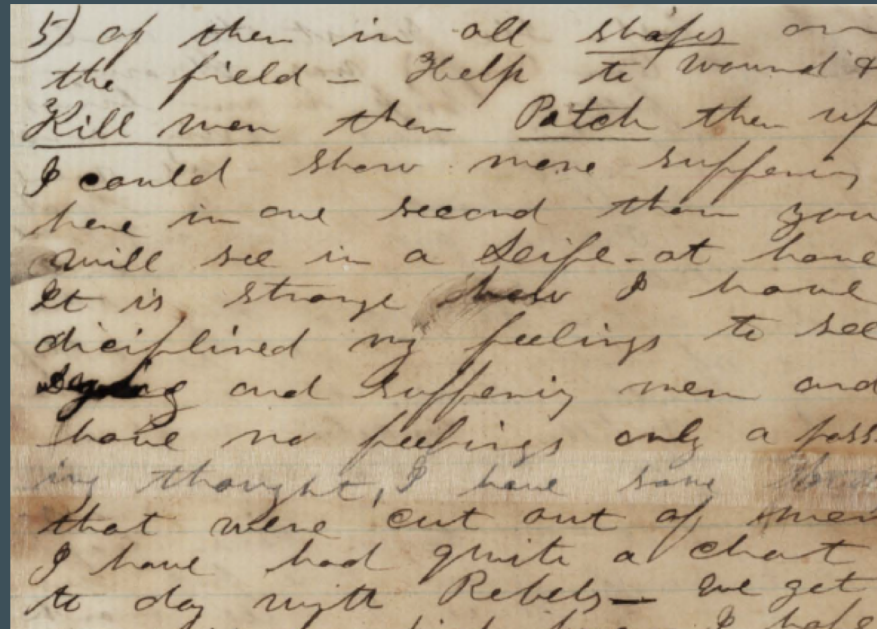 5) of them in all shapes on
the field - Help to wound &
Kill men then Patch them up
I could show more suffering
here in one second than you
will see in a Leife - at home
It is strange how I have
diciplined my feelings to see
dying and suffering men and
have no feelings only a pass
ing thought, I have some
that were cut out of men
I have had quite a chat
to day with Rebels - we get
I hope